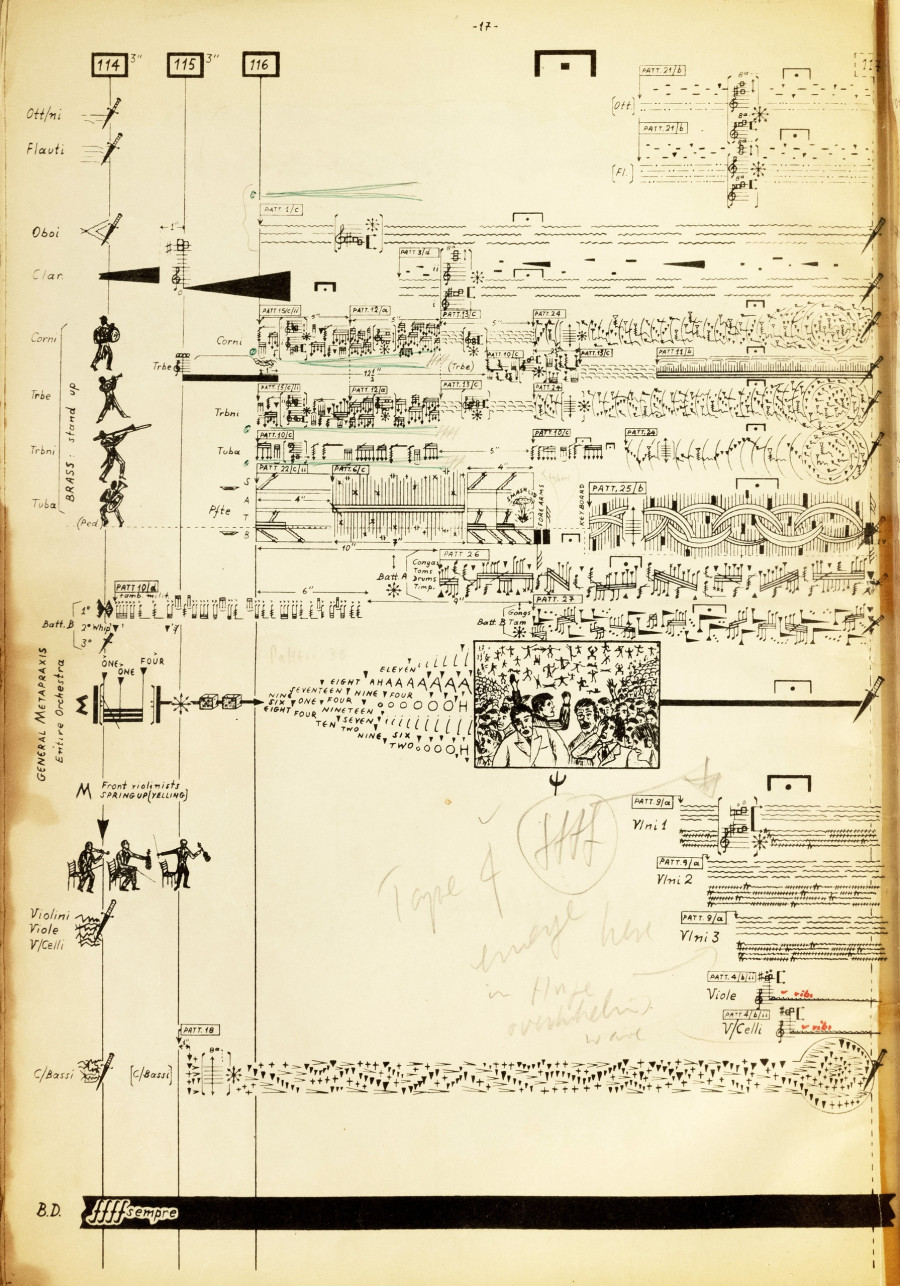 -17-
114 3" 115 3" 116
PATT. 21/b
Ott/ni
(Ott)
PATT. 21/b
Flauti
(Fl.)
PATT. 1/c
Oboi
1"
Clar.
PATT. 3/d
Corni
PATT. 15/c/ii
5"
PATT. 12/a
5"
PATT. 13/c
5"
PATT. 24
Corni
Trbe
12½"
(Trbe)
PATT. 10/c
PATT. 13/c
PATT. 11/b
Trbe
PATT. 13/c/ii
PATT. 12/a
PATT. 13/c
PATT. 24
Trbni
BRASS: stand up
Trbni
PATT. 10/c
PATT. 10/c
PATT. 24
Tuba
5"
PATT. 22/c/ii
PATT. 6/c
4"
Tuba
(Ped)
Pfte
S
A
T
B
4"
SMASH LID
FOREARMS
KEYBOARD
PATT. 25/b
10"
PATT. 26
Batt. A
Conga
Toms
Drums
Timp.
PATT. 10/d
tamb. milit.
6"
9"
PATT. 27
Batt. B
1°
2° Whip
3°
Batt. B
Gongs
Tam
GENERAL METAPRAXIS
Entire Orchestra
M
ONE
ONE
FOUR
ELEVEN
EIGHT AHAAAAAAA
SEVENTEEN NINE FOUR
NINE
SIX ONE FOUR OOOOOH
EIGHT FOUR NINETEEN
TEN SEVEN
TWO
NINE SIX
TWO OOOH
M Front violinists
SPRING UP (YELLING)
PATT. 9/a
Vlni 1
PATT. 9/a
Vlni 2
PATT. 9/a
Vlni 3
Violini
Viole
V/Celli
Tape 4
emerge here
in Huge
overwhelming
wave
PATT. 4/b/ii
Viole
vibr
PATT. 4/b/ii
V/Celli
vibr
PATT. 18
1"
C/Bassi
(C/Bassi)
B.D.
ffff sempre